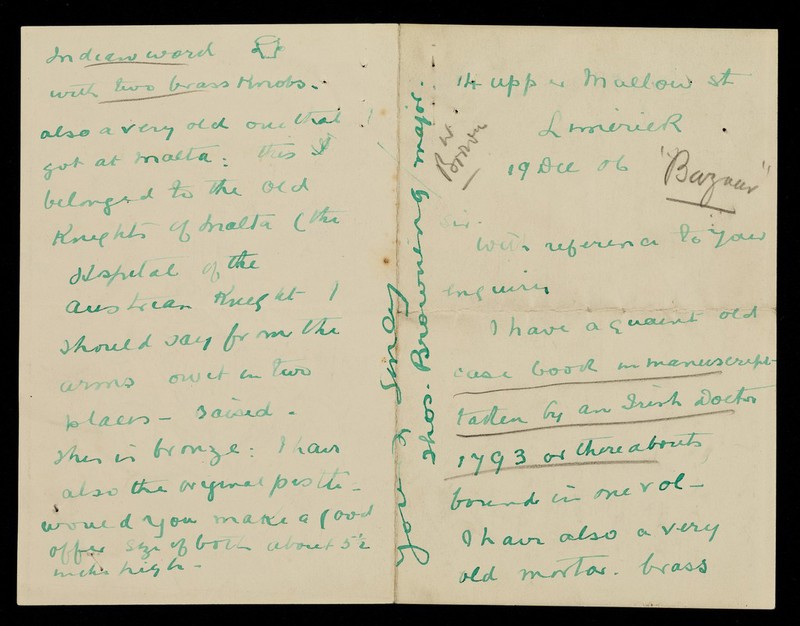 14 Upper Mallow St
Limerick
19 Dec 06
"Bazaar"
W
Sir.
With reference to your
enquiries
I have a quaint old
case book in manuscript
taken by an Irish Doctor
1793 or thereabouts
bound in one vol –
I have also a very
old mortar. brass
Indian work
with two brass Knobs.
also a very old one that I
got at Malta: this
belonged to the old
Knights of Malta (the
Hospital of the
Austrian Knight I
should say from the
arms on it in two
places – raised.
This is bronze: I have
also the original pestle –
would you make a good
offer size of both about 5½
inches high –
Yours Sincly
Thos. Browning major.